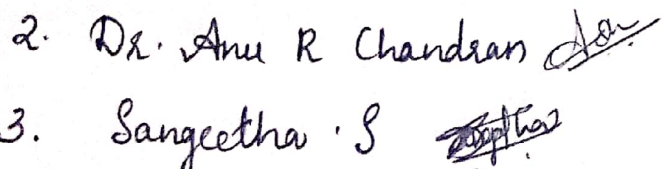 2. Dr. Anu R Chandran
3. Sangeetha . S